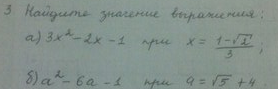 3 Найдите значение выражения:
а) 3x² - 2x - 1 при x = (1-√2)/3;
б) a² - 6a - 1 при a = √5 + 4.